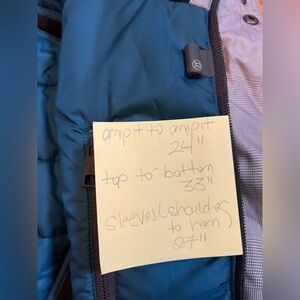 ampit to ampit
24"
top to bottom
33"
sleeves (shoulder
to hem)
27"